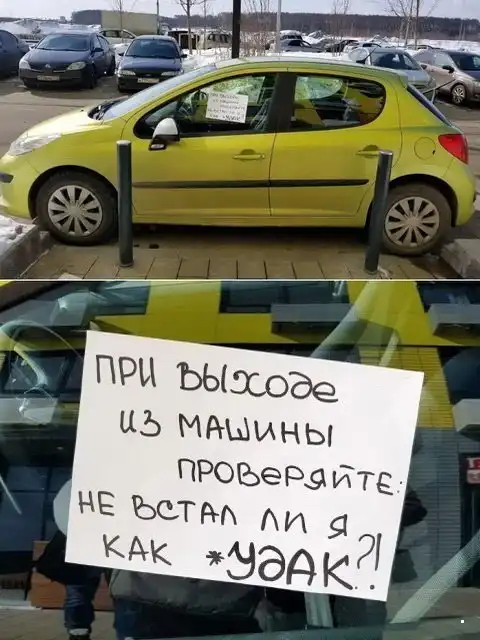 ПРИ ВЫХОДЕ
ИЗ МАШИНЫ
ПРОВЕРЯЙТЕ:
НЕ ВСТАЛ ЛИ Я
КАК *УДАК?!